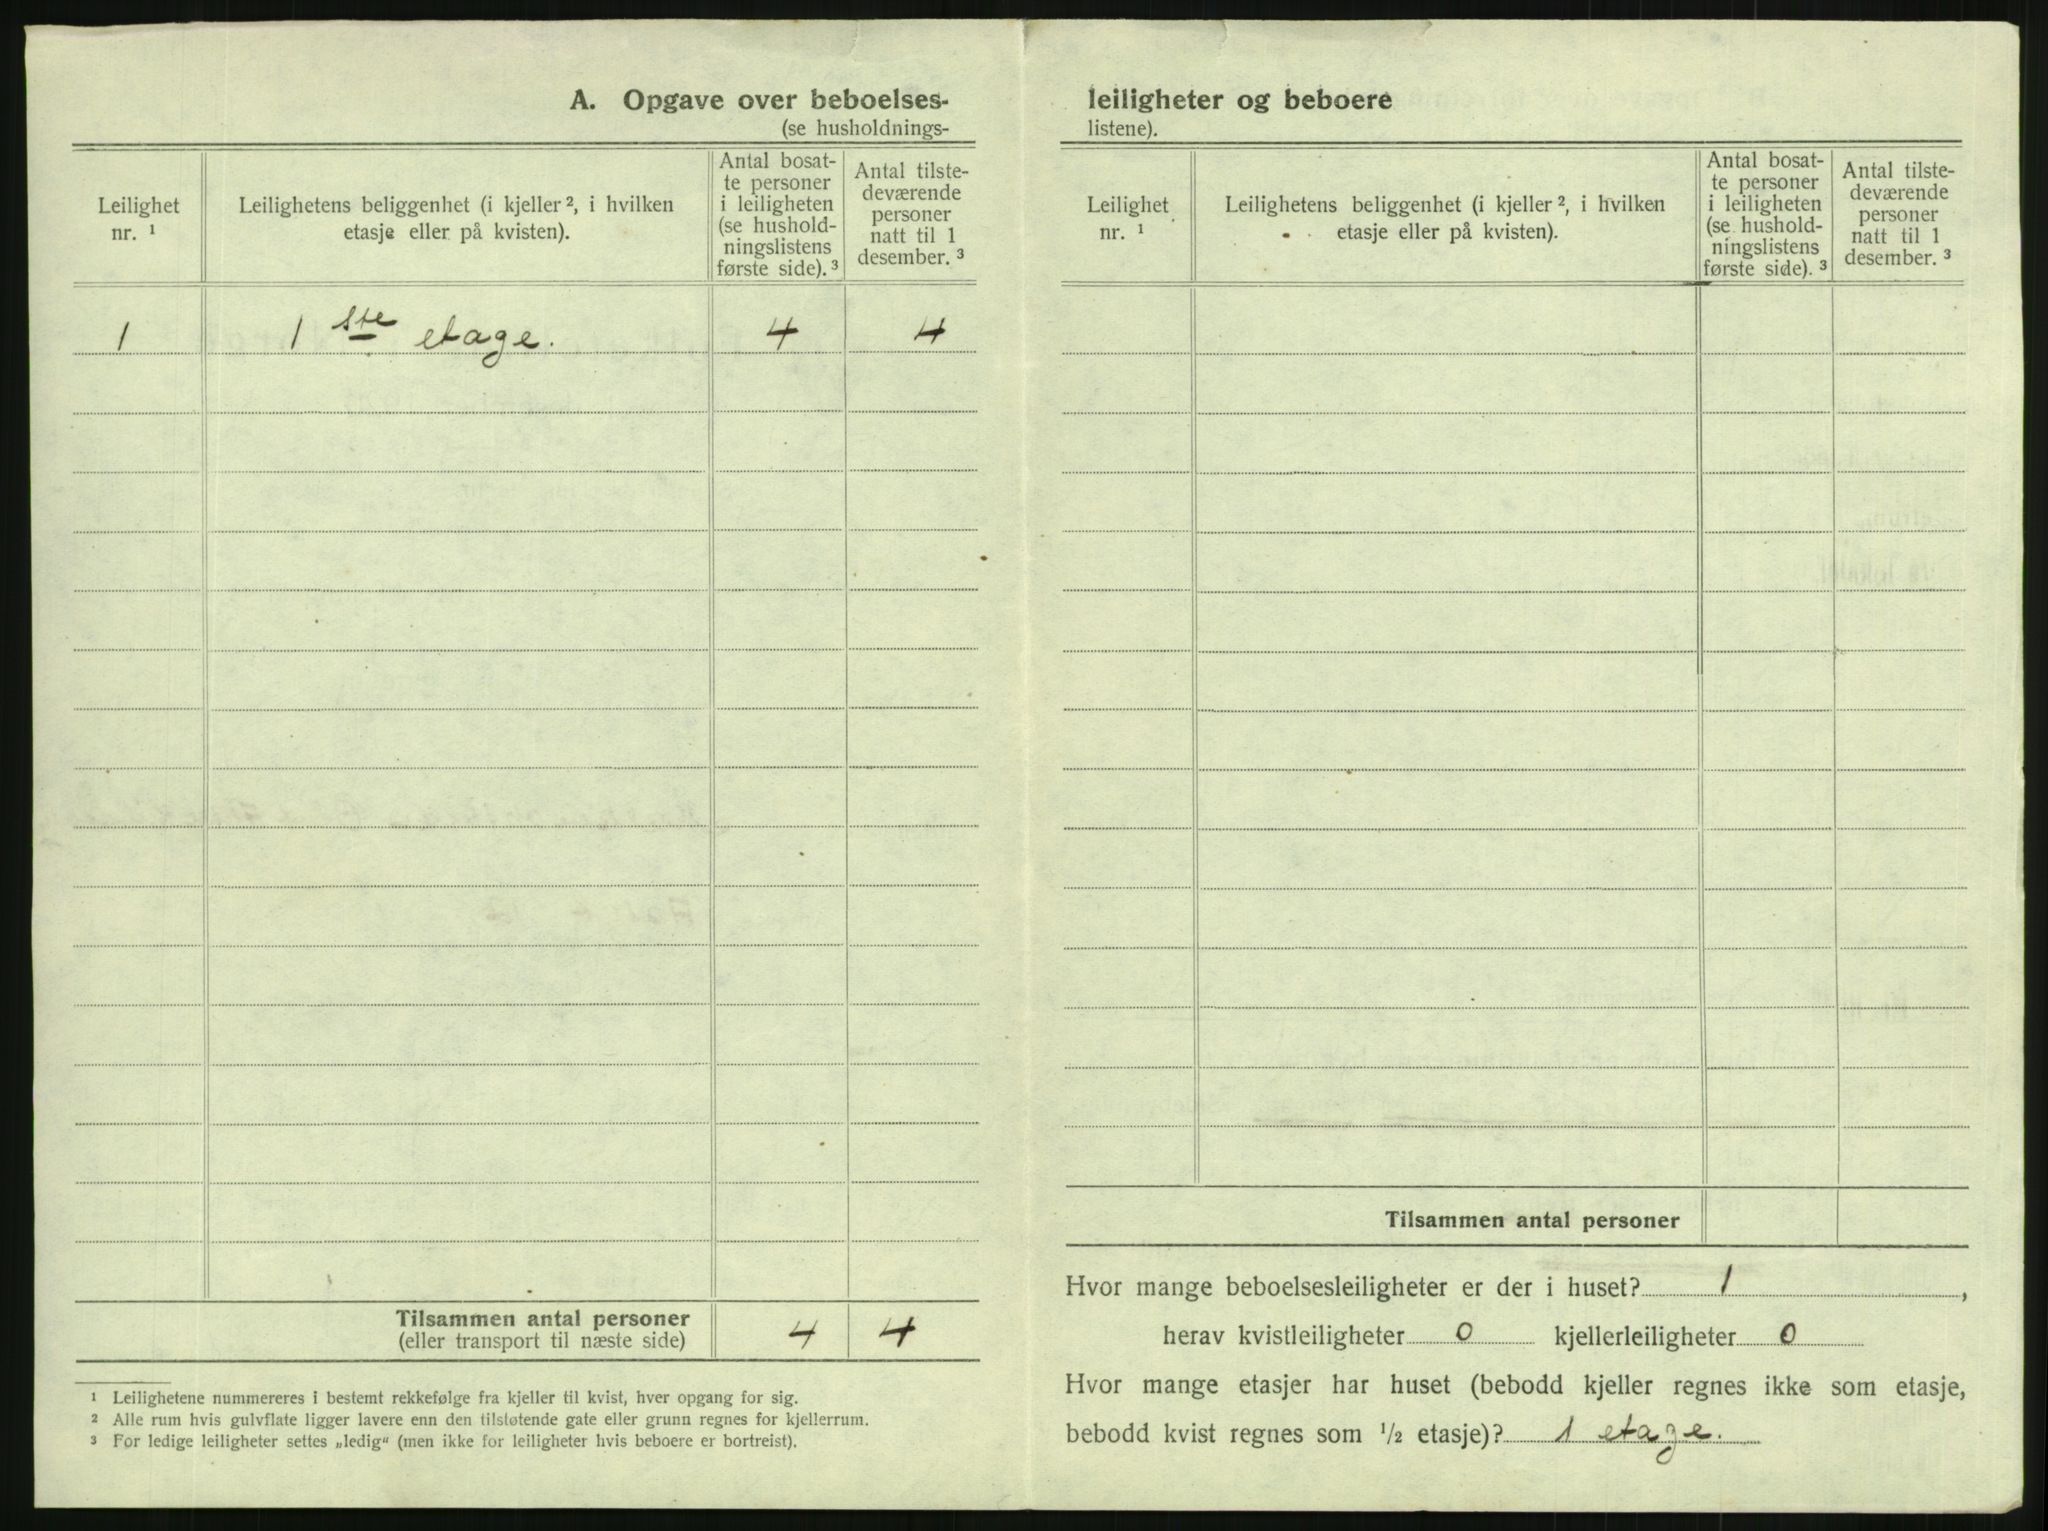 A. Opgave over beboelses-
(se husholdnings-
Leilighet
nr. ¹
Leilighetens beliggenhet (i kjeller ², i hvilken
etasje eller på kvisten).
Antal bosat-
te personer
i leiligheten
(se hushold-
ningslistens
første side). ³
Antal tilste-
deværende
personer
natt til 1
desember. ³
1 1 ste etage. 4 4
Tilsammen antal personer
(eller transport til næste side)
4 4
¹ Leilighetene nummereres i bestemt rekkefølge fra kjeller til kvist, hver opgang for sig.
² Alle rum hvis gulvflate ligger lavere enn den tilstøtende gate eller grunn regnes for kjellerrum.
³ For ledige leiligheter settes „ledig“ (men ikke for leiligheter hvis beboere er bortreist).
leiligheter og beboere
listene).
Leilighet
nr. ¹
Leilighetens beliggenhet (i kjeller ², i hvilken
etasje eller på kvisten).
Antal bosat-
te personer
i leiligheten
(se hushold-
ningslistens
første side). ³
Antal tilste-
deværende
personer
natt til 1
desember. ³
Tilsammen antal personer
Hvor mange beboelsesleiligheter er der i huset? 1,
herav kvistleiligheter 0 kjellerleiligheter 0
Hvor mange etasjer har huset (bebodd kjeller regnes ikke som etasje,
bebodd kvist regnes som ½ etasje)? 1 etage.